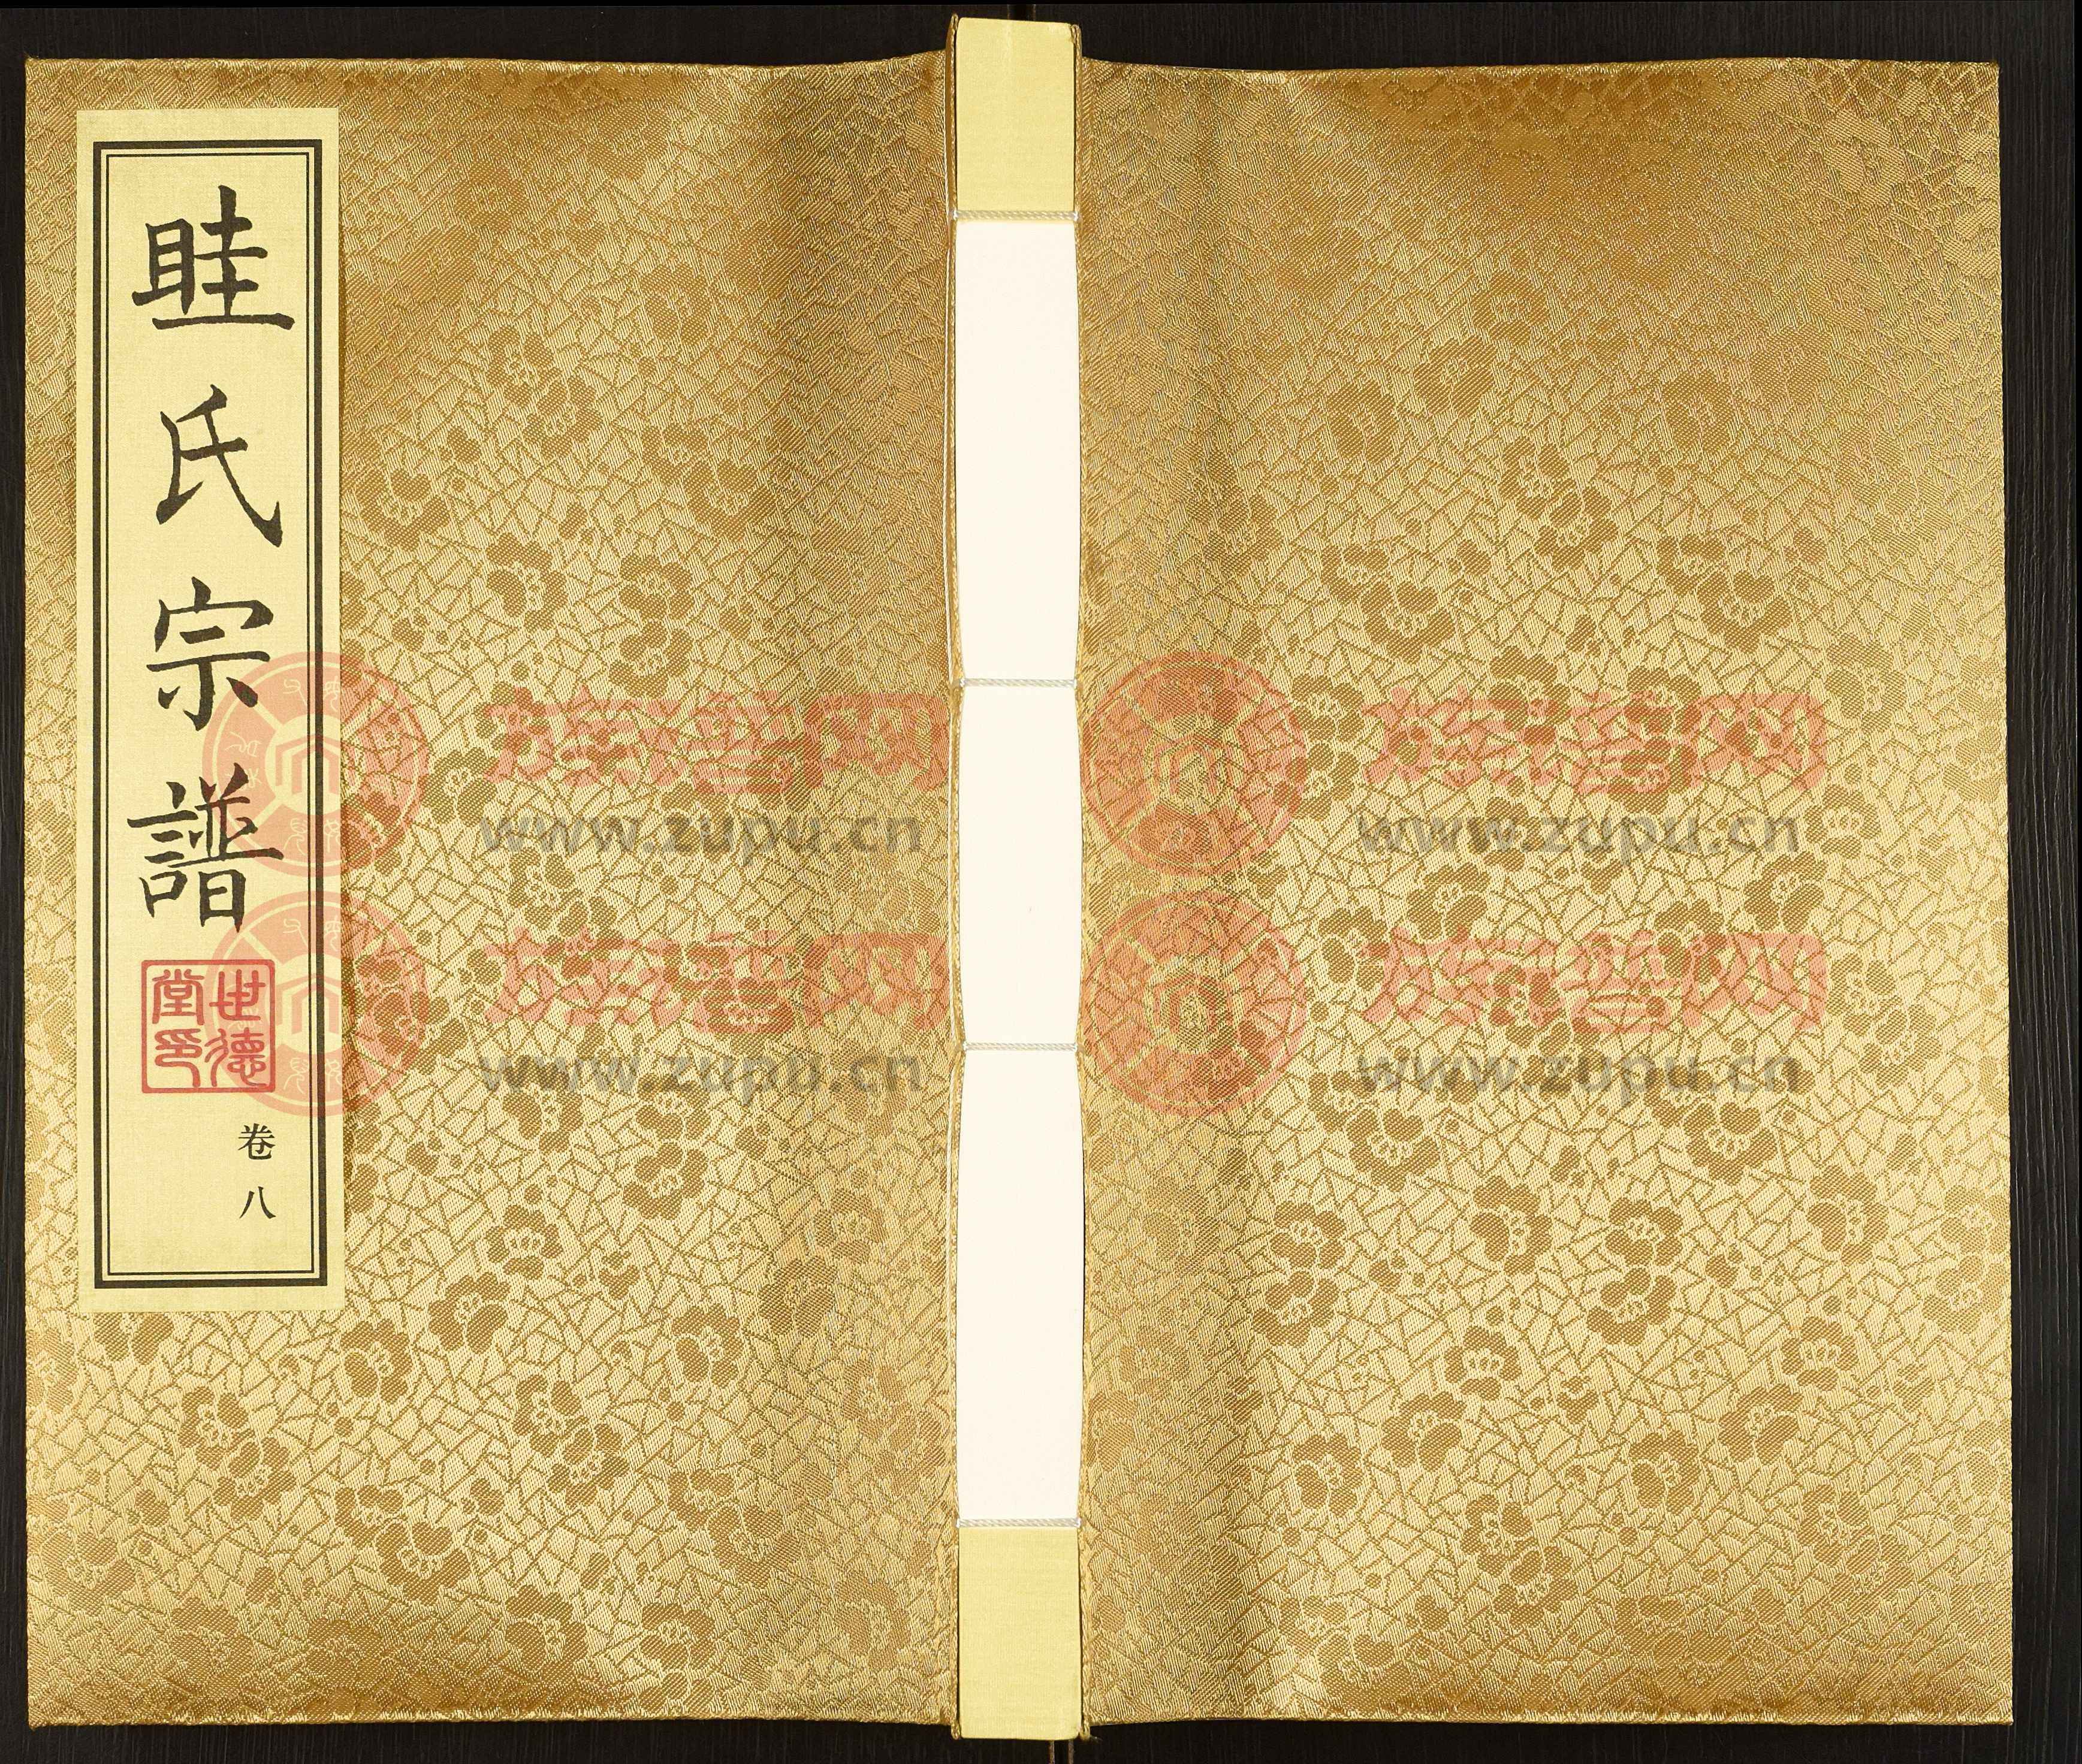 眭氏宗譜
世德堂印
卷八
族谱网
www.zupu.cn
族谱网
www.zupu.cn
族谱网
www.zupu.cn
族谱网
www.zupu.cn